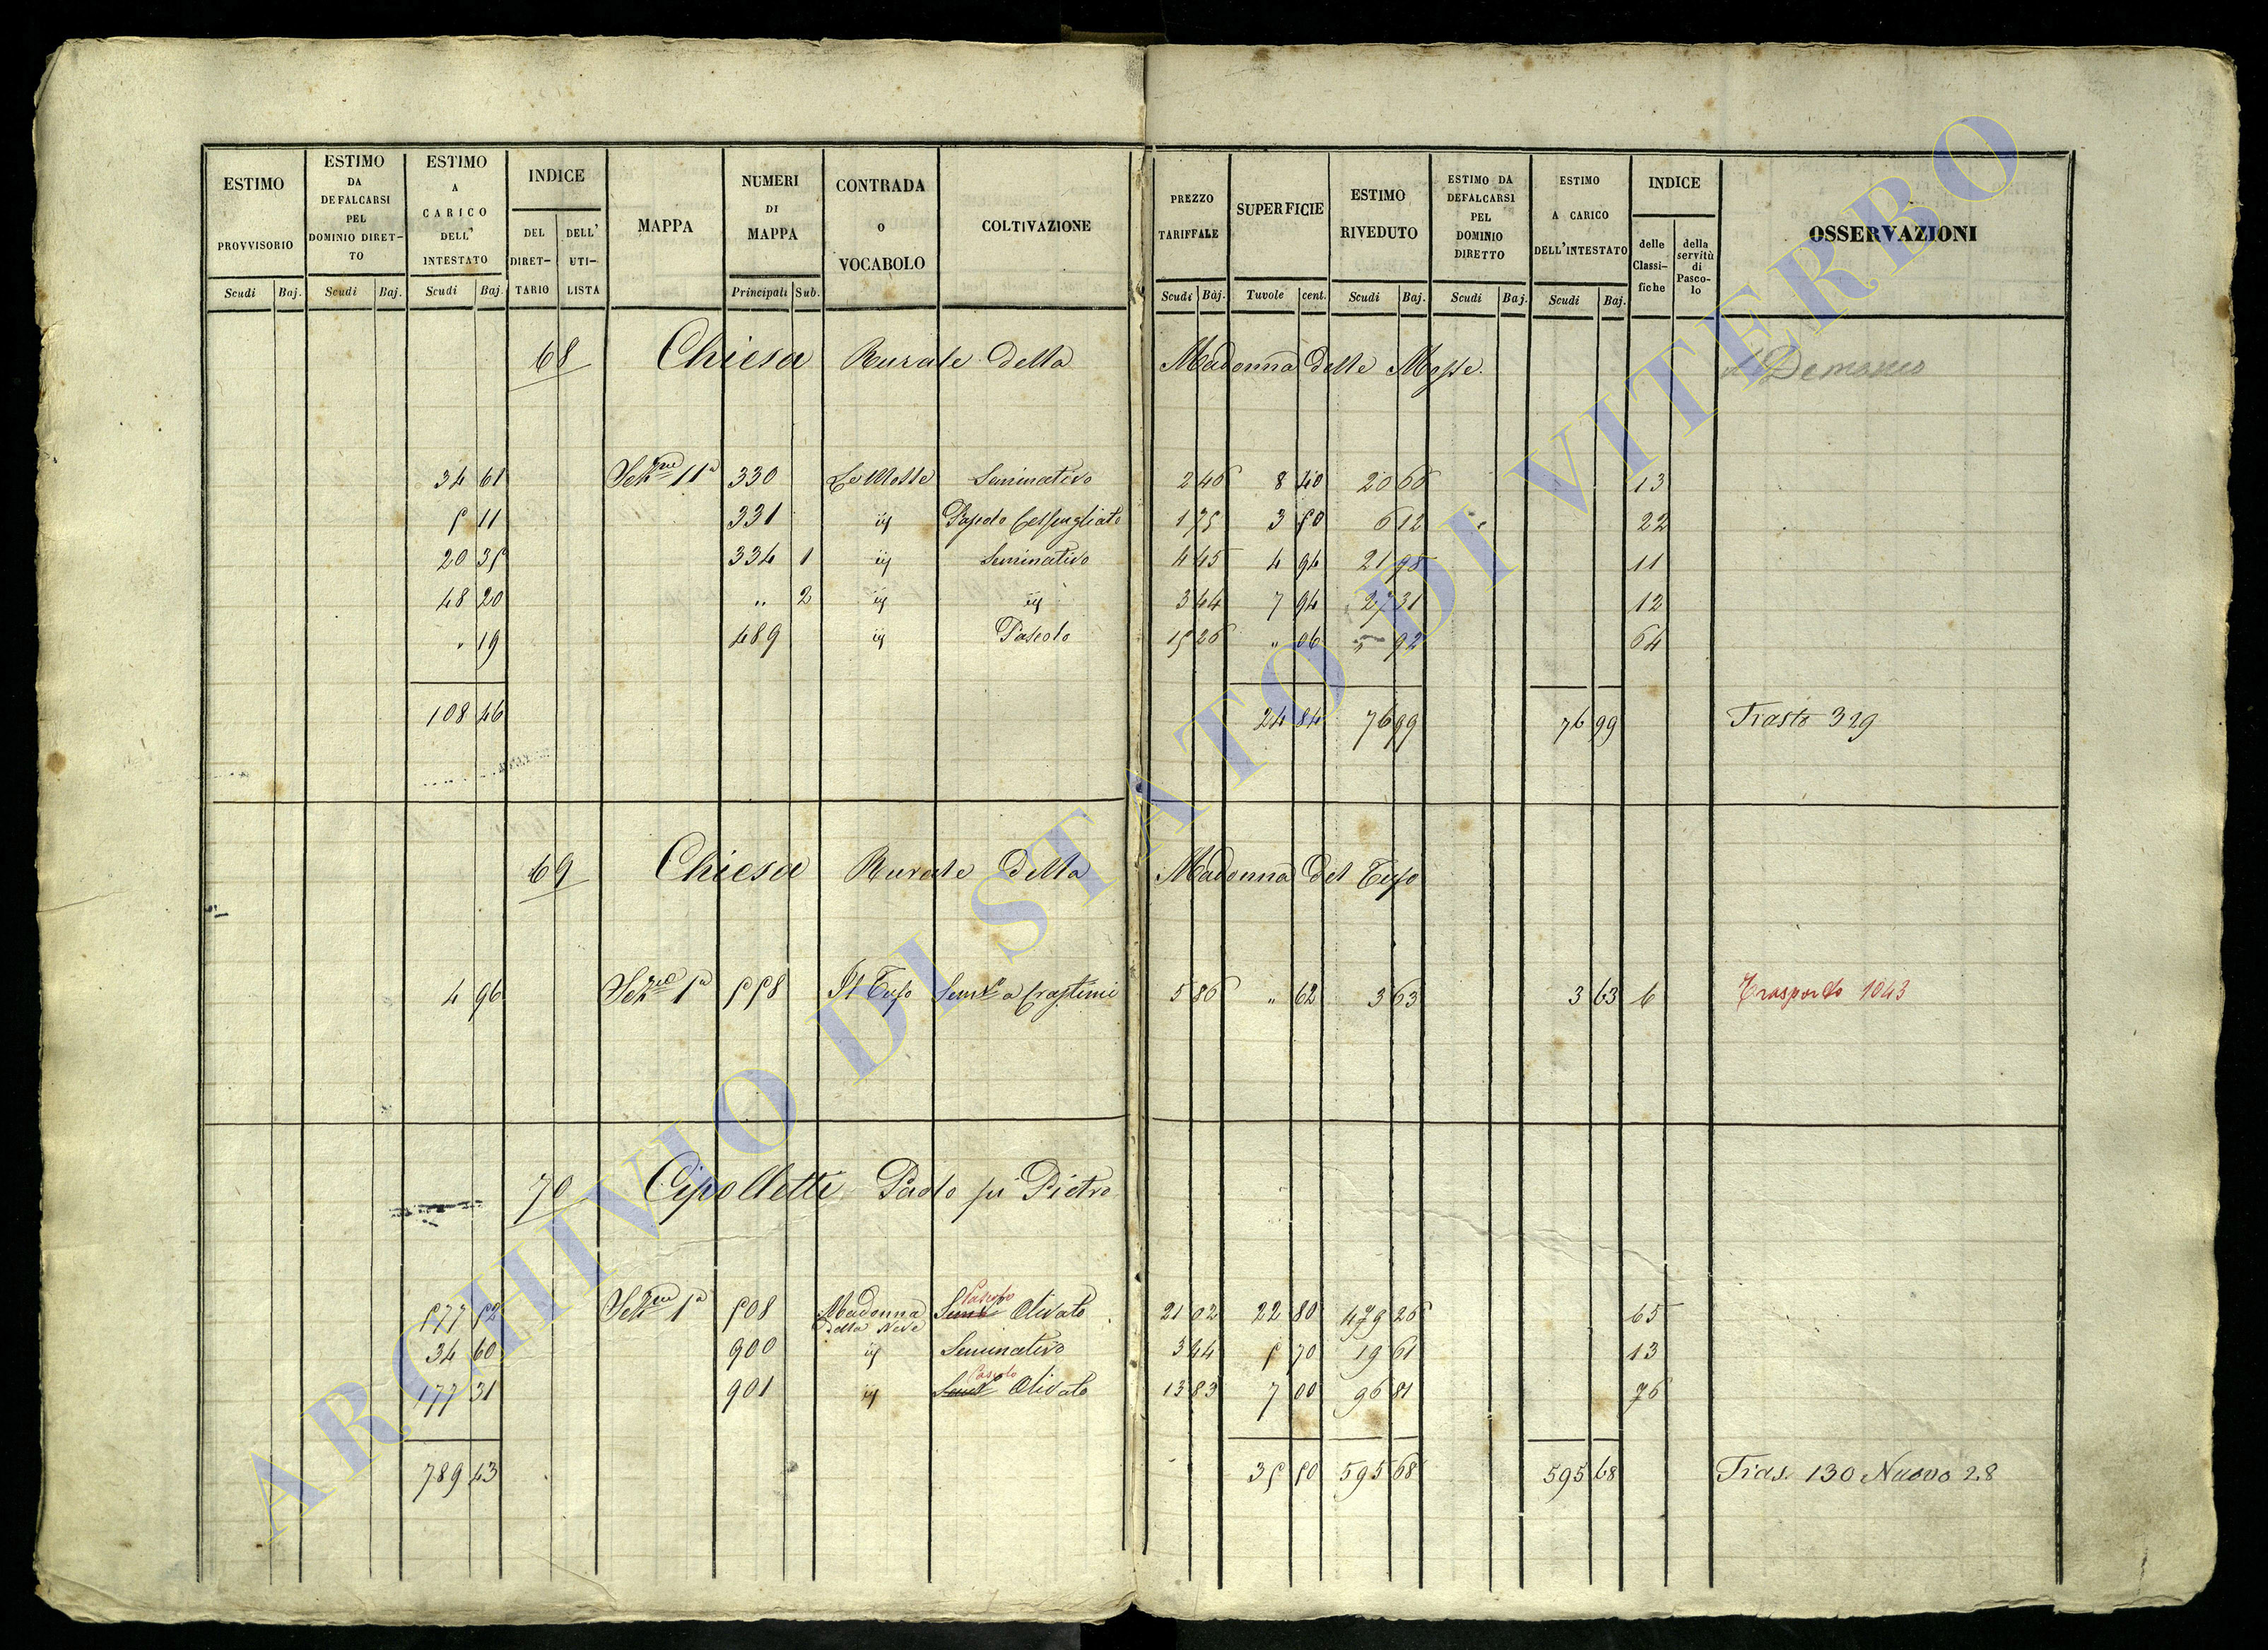 ESTIMO PROVVISORIO
Scudi Baj.
ESTIMO DA DEFALCARSI PEL DOMINIO DIRET-TO
Scudi Baj.
ESTIMO A CARICO DELL' INTESTATO
Scudi Baj.
INDICE
DEL DIRET-TARIO
DELL' UTI-LISTA
MAPPA
NUMERI DI MAPPA
Principali Sub.
CONTRADA O VOCABOLO
COLTIVAZIONE
PREZZO TARIFFALE
Scudi Baj.
SUPERFICIE
Tavole cent.
ESTIMO RIVEDUTO
Scudi Baj.
ESTIMO DA DEFALCARSI PEL DOMINIO DIRETTO
Scudi Baj.
ESTIMO A CARICO DELL'INTESTATO
Scudi Baj.
INDICE
delle Classi-fiche
della servitù di Pasco-lo
OSSERVAZIONI
68 Chiesa Rurale della Madonna delle Mosse. Demanio
34 61 Sez.ne 11a 330 Le Mosse Seminativo 2 46 8 40 20 66 13
5 11 331 ij Pascolo Cespugliato 1 75 3 50 6 12 22
20 35 334 1 ij Seminativo 4 45 4 94 21 98 11
48 20 " 2 ij ij 3 44 7 94 27 31 12
" 19 489 ij Pascolo 15 26 " 06 " 92 64
108 46 24 84 76 99 76 99 Trasto 329
69 Chiesa Rurale della Madonna del Tufo
4 96 Sez.ne 1a 558 Il Tufo Sem.o a 5 86 " 62 3 63 3 63 6 Trasporto 1043
70 Cipolletti Paolo fu Pietro
577 52 Sez.ne 1a 508 Madonna della Neve Sem.o Pascolo Olivato 21 02 22 80 479 26 65
34 60 900 ij Seminativo 3 44 5 70 19 61 13
177 31 901 ij Sem.o Pascolo Olivato 13 83 7 00 96 81 76
789 43 35 50 595 68 595 68 Tras. 130 Nuovo 28
ARCHIVIO DI STATO DI VITERBO